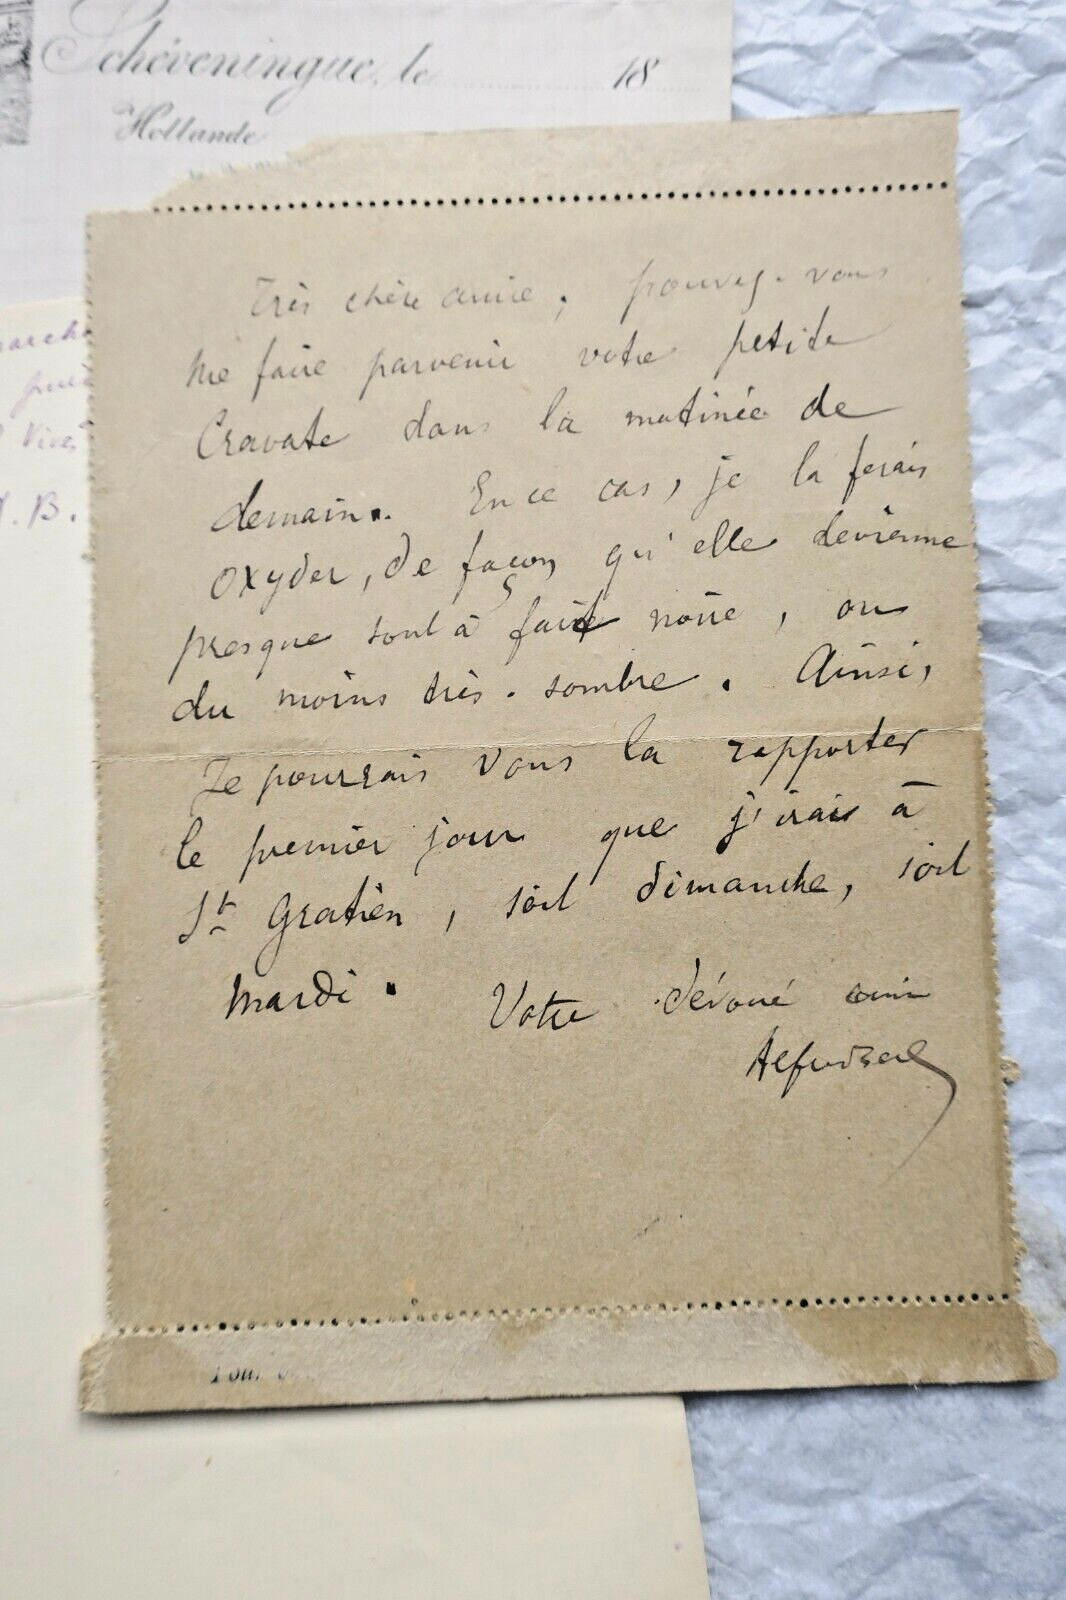 Schéveningue, le 18
Hollande
Très chère amie, pouvez-vous
me faire parvenir votre petite
Cravate dans la matinée de
demain. En ce cas, je la ferais
oxyder, de façon qu'elle devienne
presque tout à fait noire, ou
du moins très-sombre. Ainsi,
Je pourrais vous la rapporter
le premier jour que j'irais à
St Gratien, soit dimanche, soit
mardi. Votre dévoué ami
B.